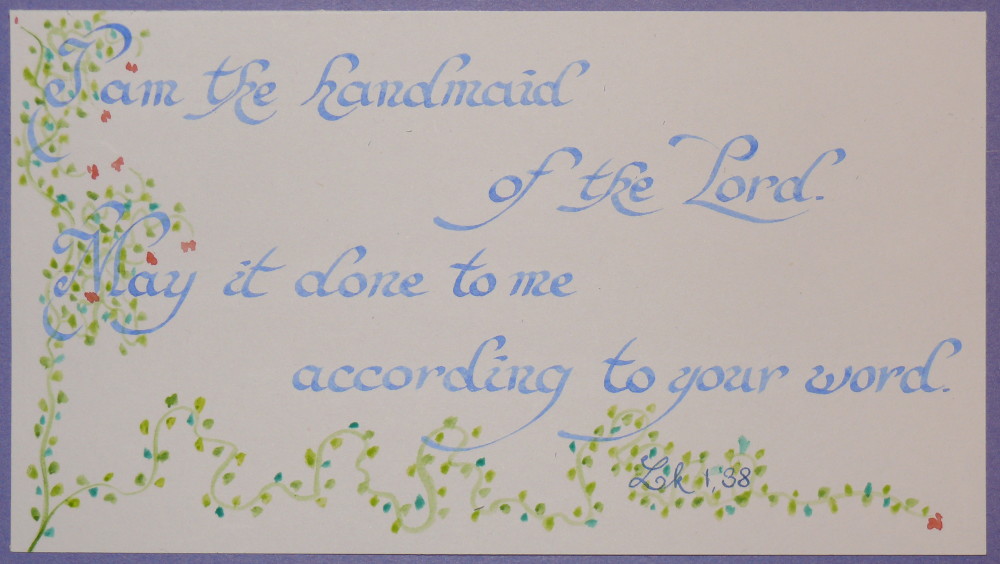 I am the handmaid
of the Lord.
May it done to me
according to your word.
Lk 1,38